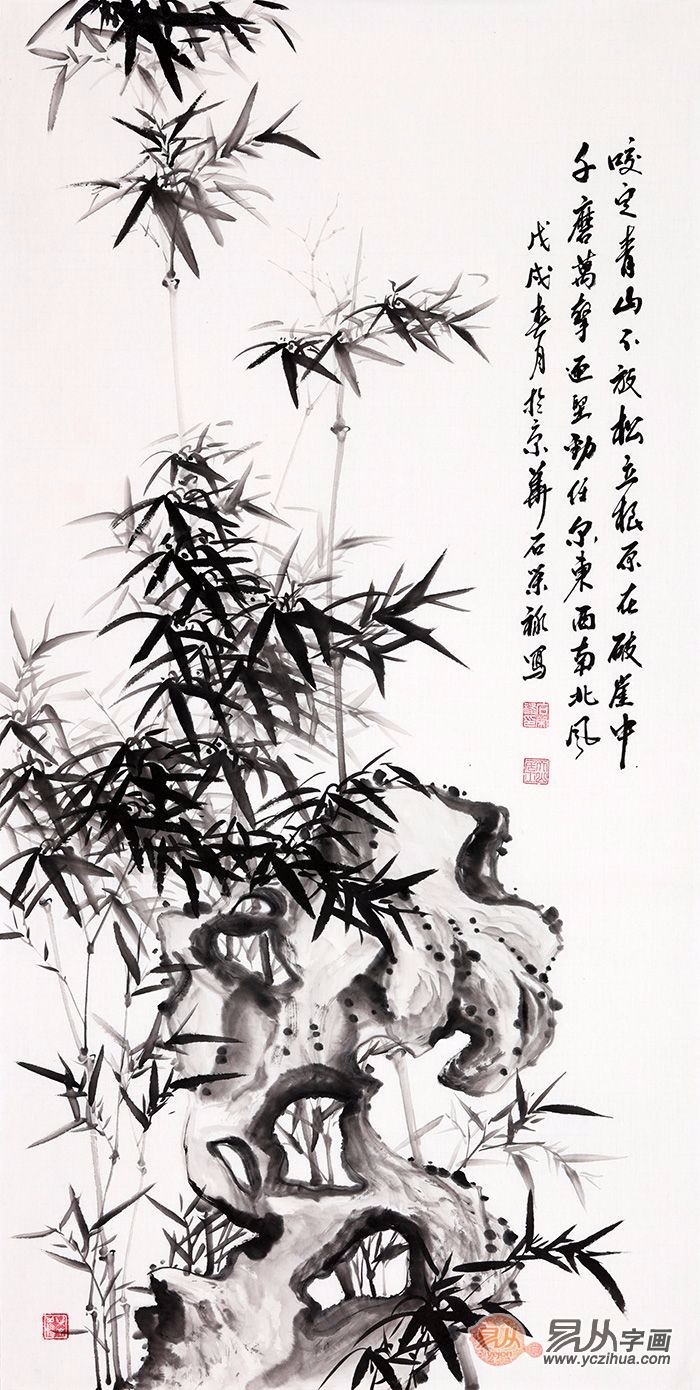 咬定青山不放松立根原在破崖中
千磨萬擊还坚勁任尔東西南北风
戊戌春月於京華石荣禄寫
易从
易从字画
www.yczihua.com